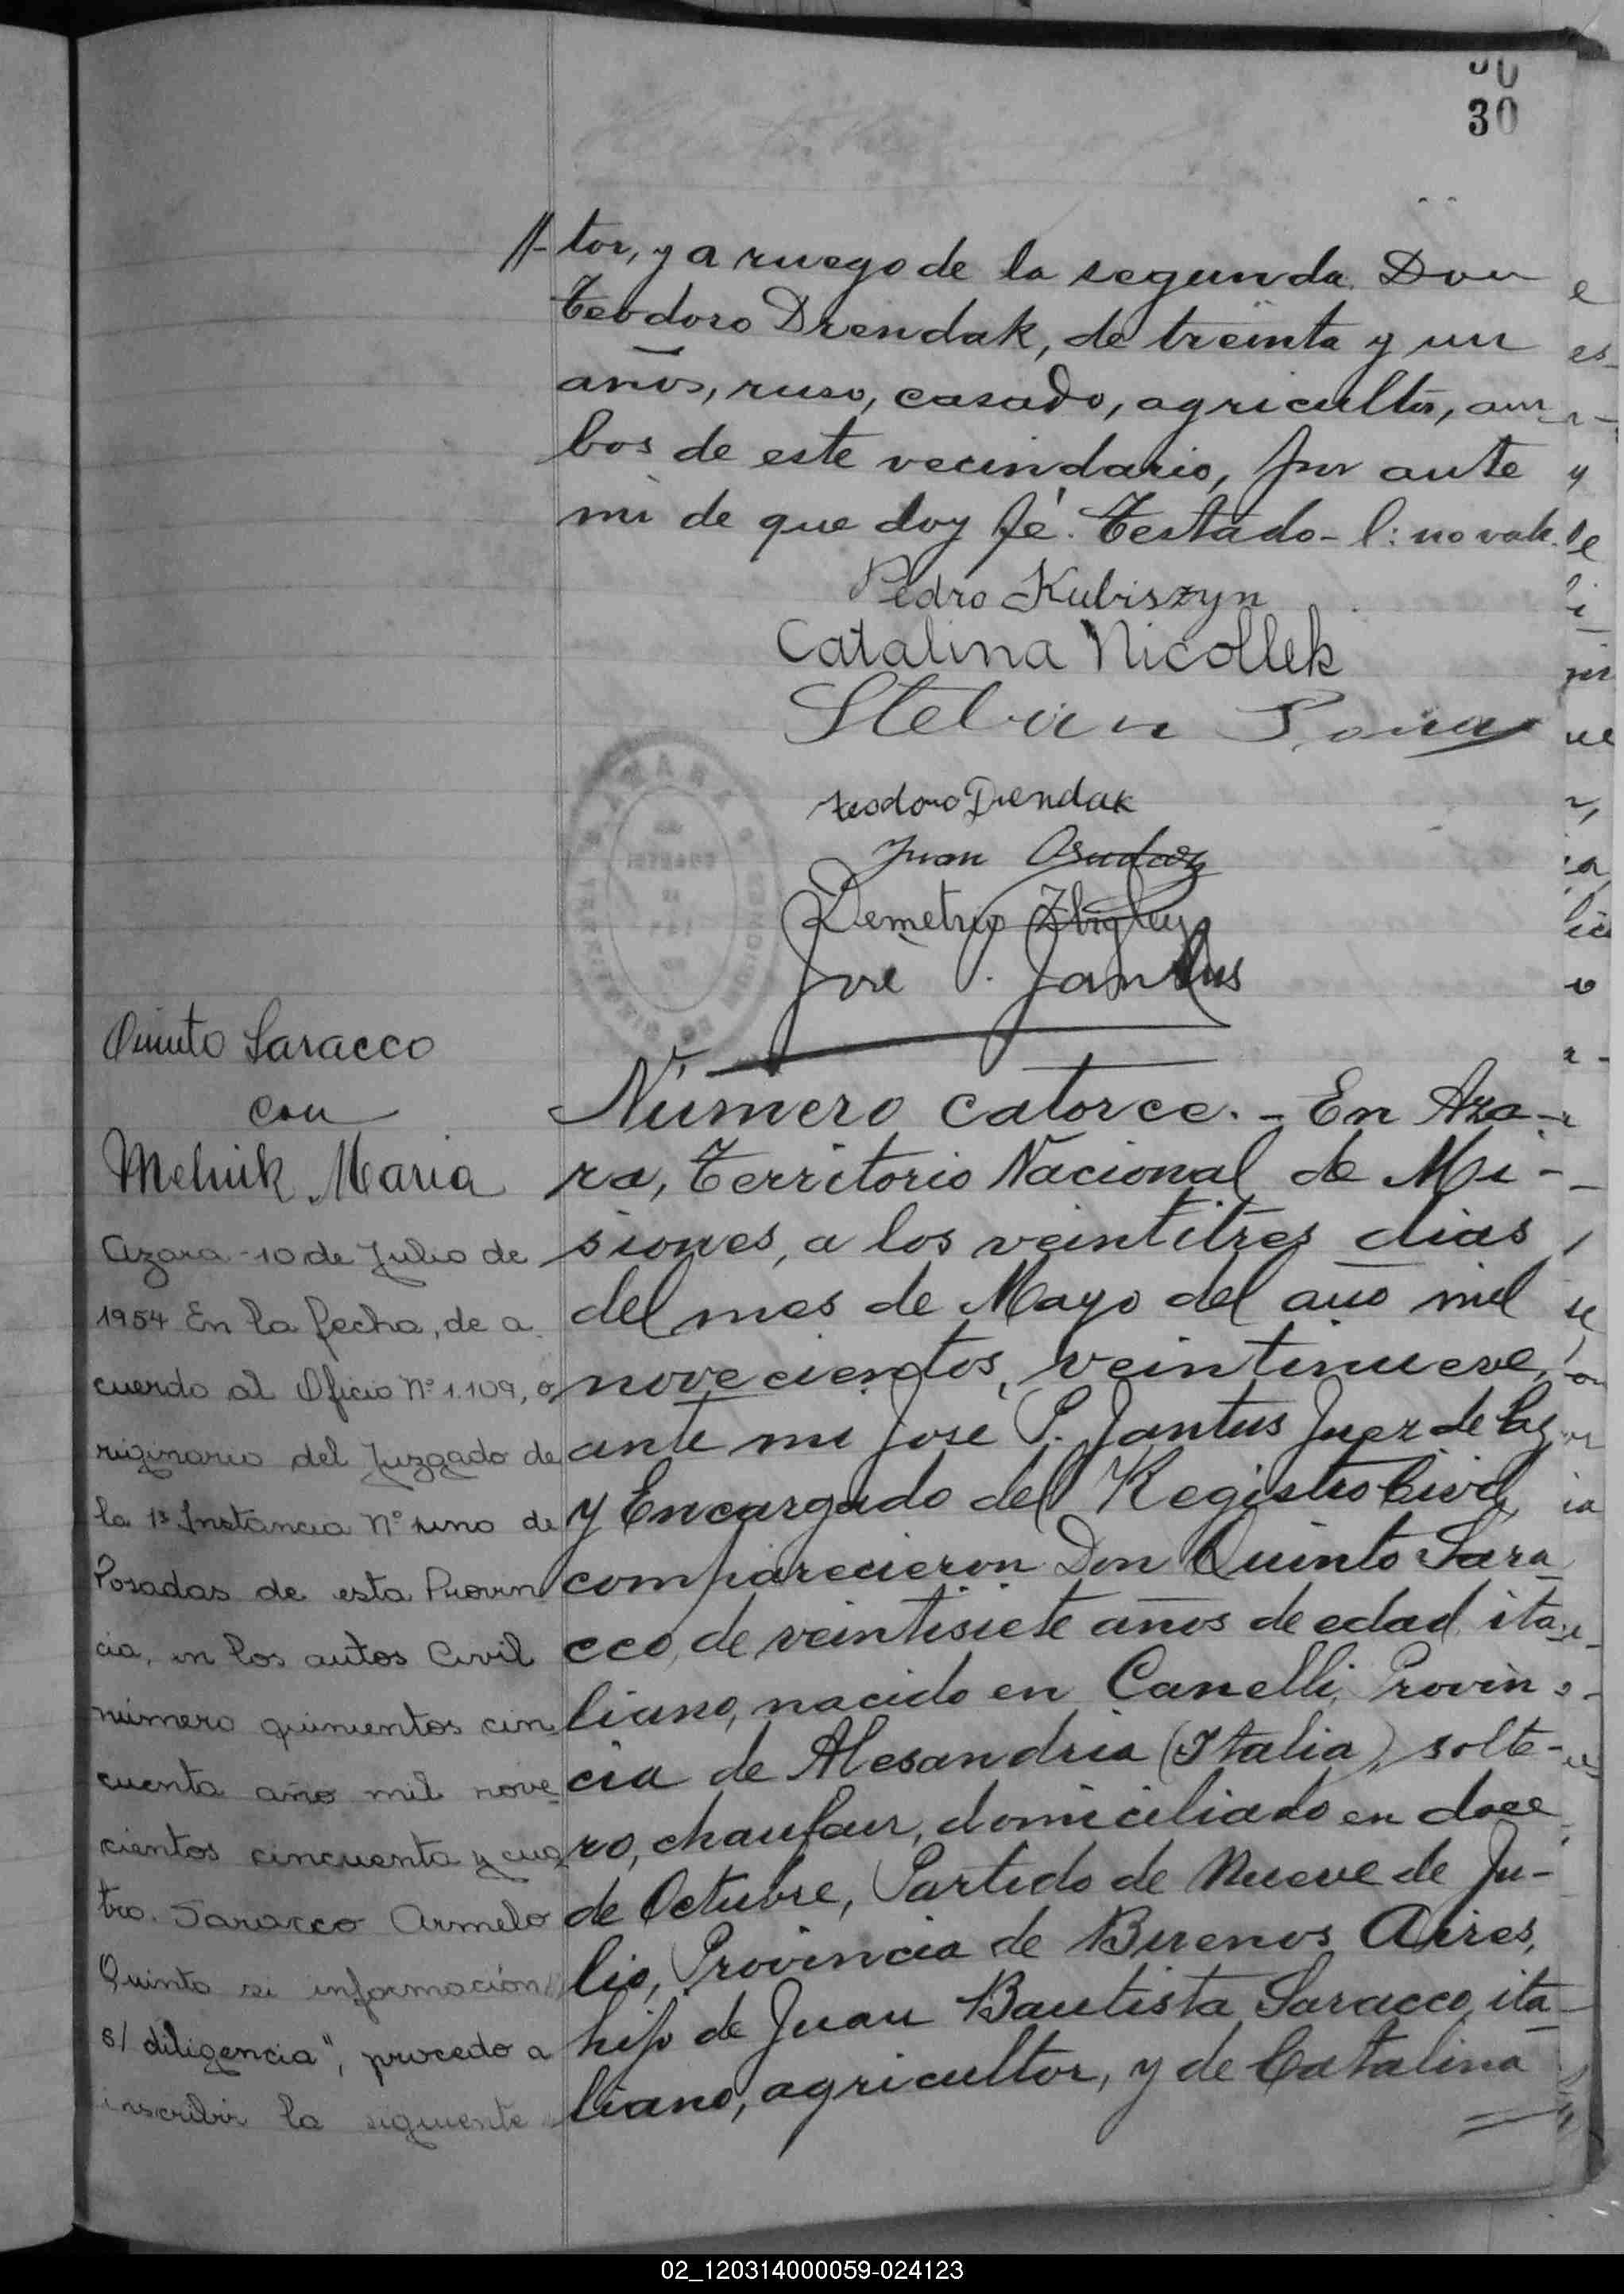 30
//-tor, y a ruego de la segunda Don
Teodoro Drendak, de treinta y un
años, ruso, casado, agricultor, am
bos de este vecindario, por ante
mi de que doy fé. Testado - l: no vale.
Pedro Kubiszyn
Catalina Nicollek
Stefan
Teodoro Drendak
Juan
Demetrio
José P. Jantus
Quinto Saracco
con
Melnik Maria
Azara - 10 de Julio de
1954 En la fecha, de a
cuerdo al Oficio Nº 1.109, o
riginario del Juzgado de
la 1ª Instancia Nº uno de
Posadas de esta Provin
cia, en los autos Civil
número quinientos cin
cuenta año mil nove
cientos cincuenta y cua
tro. Saracco Armelo
Quinto s/ información
s/ diligencia", procedo a
inscribir la siguiente
Número catorce. - En Aza-
ra, Territorio Nacional de Mi-
siones, a los veintitres dias
del mes de Mayo del año mil
novecientos, veintinueve,
ante mi José P. Jantus Juez de Paz
y Encargado del Registro Civil,
comparecieron Don Quinto Sara
cco, de veintisiete años de edad, ita
liano, nacido en Canelli, Provin
cia de Alesandria (Italia), solte-
ro, chaufeur, domiciliado en doce
de Octubre, Partido de Nueve de Ju-
lio, Provincia de Buenos Aires,
hijo de Juan Bautista Saracco, ita
liano, agricultor, y de Catalina
02_120314000059-024123